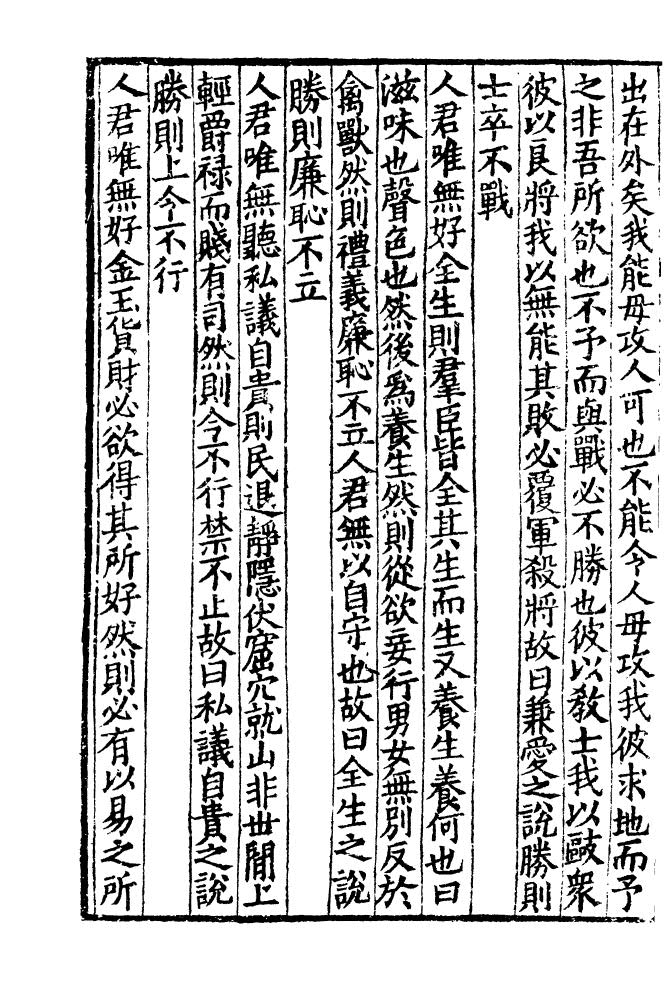 出在外矣我能毋攻人可也不能令人毋攻我彼求地而予
之非吾所欲也不予而與戰必不勝也彼以敎士我以敺衆
彼以良將我以無能其敗必覆軍殺將故曰兼愛之說勝則
士卒不戰
人君唯無好全生則羣臣皆全其生而生又養生養何也曰
滋味也聲色也然後爲養生然則從欲妄行男女無別反於
禽獸然則禮義廉恥不立人君無以自守也故曰全生之說
勝則廉恥不立
人君唯無聽私議自貴則民退靜隱伏窟穴就山非世閒上
輕爵禄而賤有司然則令不行禁不止故曰私議自貴之說
勝則上令不行
人君唯無好金玉貨財必欲得其所好然則必有以易之所